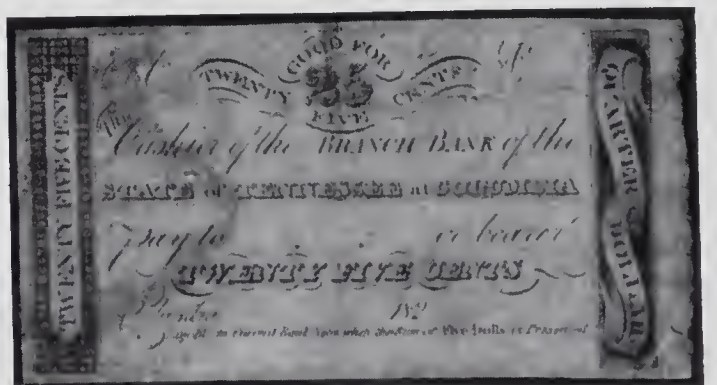 TWENTY FIVE CENTS
GOOD FOR
TWENTY 25 CENTS
FIVE
The
Cashier of the BRANCH BANK of the
STATE OF TENNESSEE at COLUMBIA
pay to or bearer
TWENTY FIVE CENTS
182
in current Bank when the Sum of Five Dolls is Presented
QUARTER DOLLAR